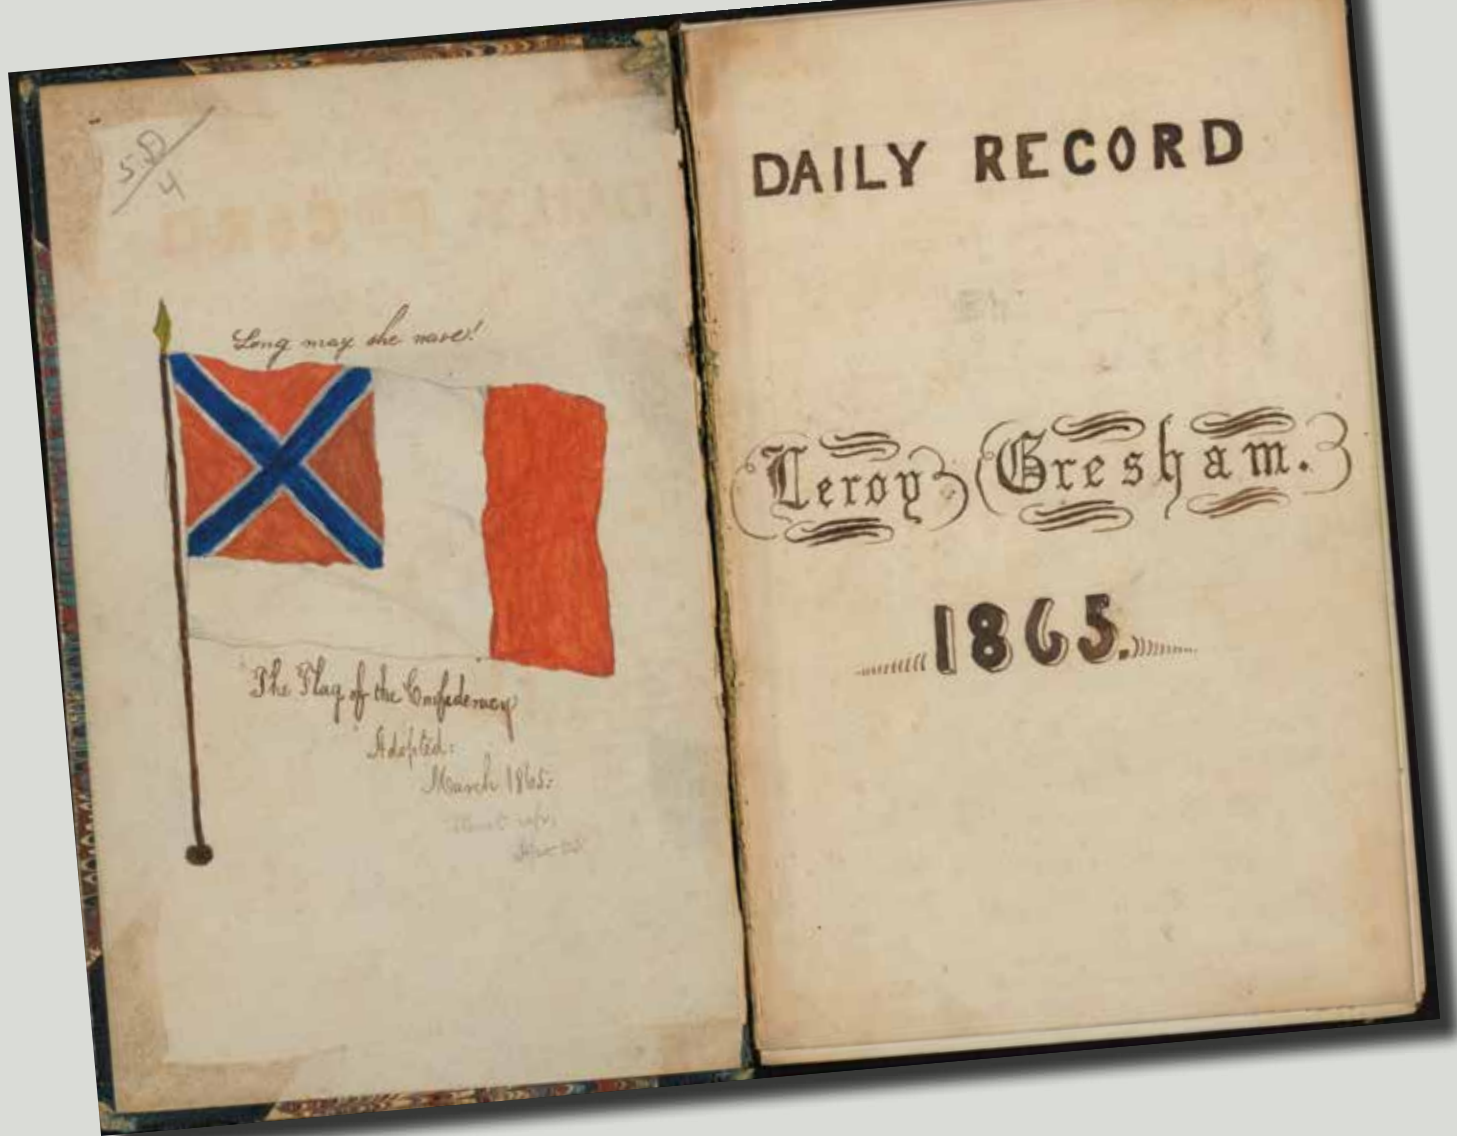 5.D
4
Long may she wave!
The Flag of the Confederacy
Adopted:
March 1865.
DAILY RECORD
Leroy Gresham.
1865.